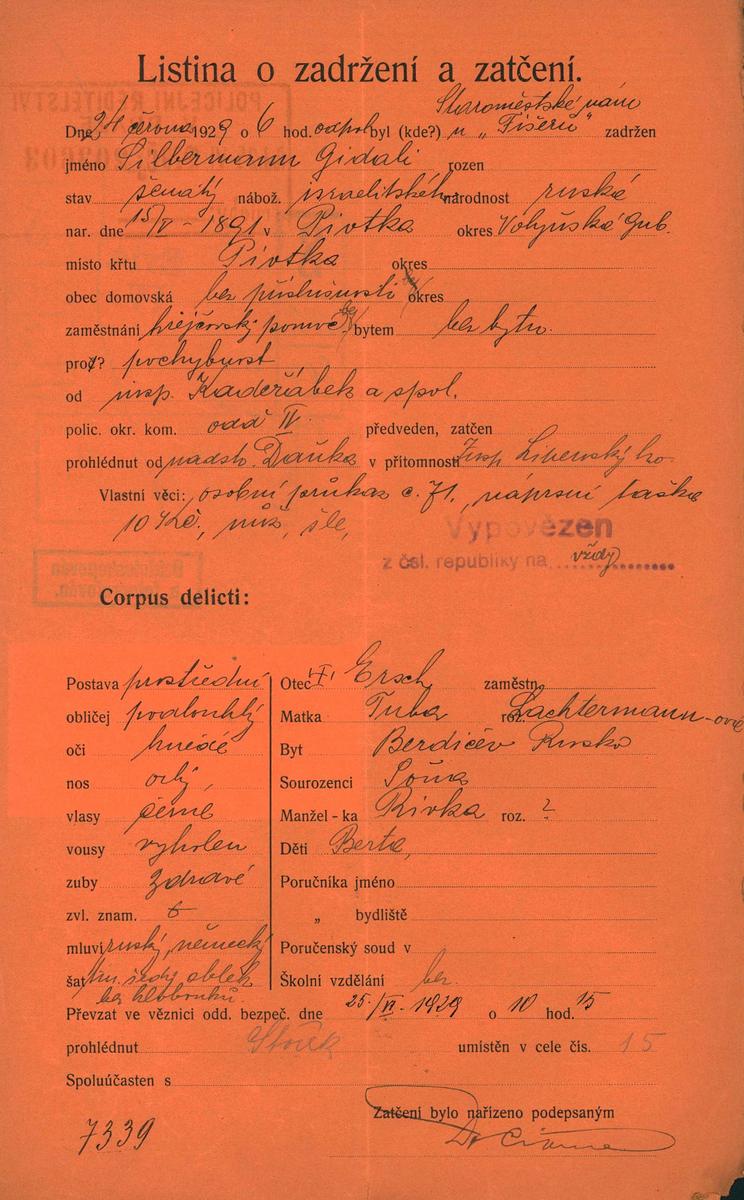 Listina o zadržení a zatčení.
Staroměstské nám
Dne 24 června 1929 o 6 hod. odpol byl (kde?) u „Fišerů“ zadržen
jméno Silbermann Gidali rozen
stav ženatý nábož. israelitského národnost ruská
nar. dne 15/V - 1891 v Pivtka okres Volyňská Gub.
místo křtu Pivtka okres
obec domovská bez příslušnosti okres
zaměstnání krejčovský pomoc bytem bez bytu.
proč? pochybnost
od insp. Kadeřábek a spol.
polic. okr. kom. odd IV předveden, zatčen
prohlédnut od nadstr. Daňka v přítomnosti Insp. Libenský ho
Vlastní věci: osobní průkaz č. 71, náprsní taška
10 Kč., nůž, šle,
Vypovězen
z čsl. republiky na vždy
Corpus delicti:
Postava prostřední Otec Ersch zaměstn.
obličej podlouhlý Matka Tuba roz. Lachtermann-ová
oči hnědé Byt Berdičev Rusko
nos orlý, Sourozenci Soňa
vlasy černé Manžel-ka Rivka roz. ?
vousy vyholen Děti Berta,
zuby zdravé Poručníka jméno
zvl. znam. „ bydliště
mluví ruský, německý Poručenský soud v
šat tm. šedý oblek Školní vzdělání bez.
bez klobouku.
Převzat ve věznici odd. bezpeč. dne 25./VI. 1929 o 10 hod. 15
prohlédnut umístěn v cele čís. 15
Spoluúčasten s
Zatčení bylo nařízeno podepsaným
7339